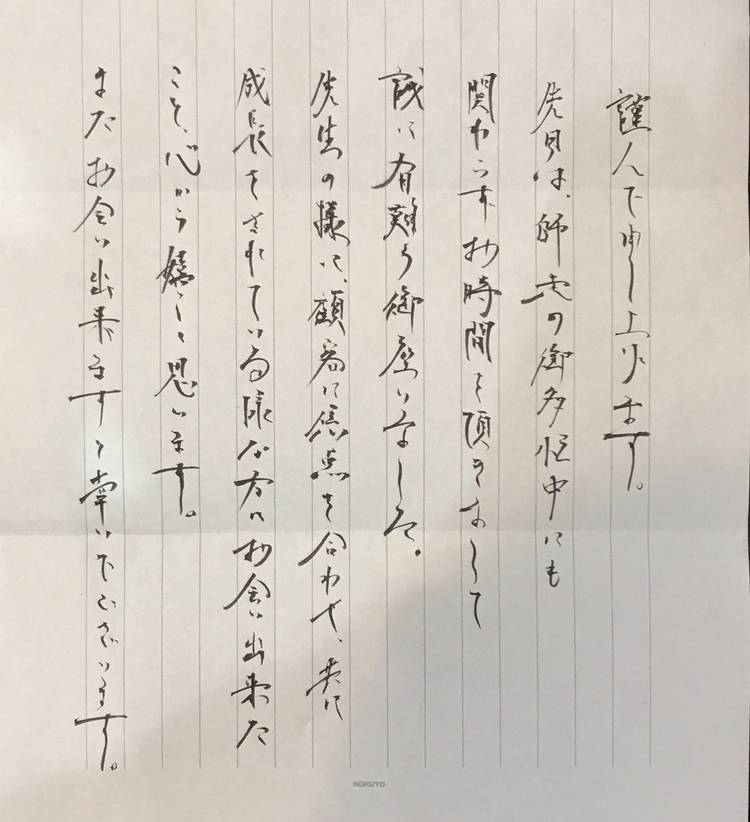 謹んで申し上げます。
先月は、師走の御多忙中にも
関わらずお時間を頂きまして
誠に有難う御座いました。
先生の様に、顧客に焦点を合わせ、共に
成長をされている様な方にお会い出来た
こと、心から嬉しく思います。
またお会い出来ますと幸いでございます。
KOKUYO